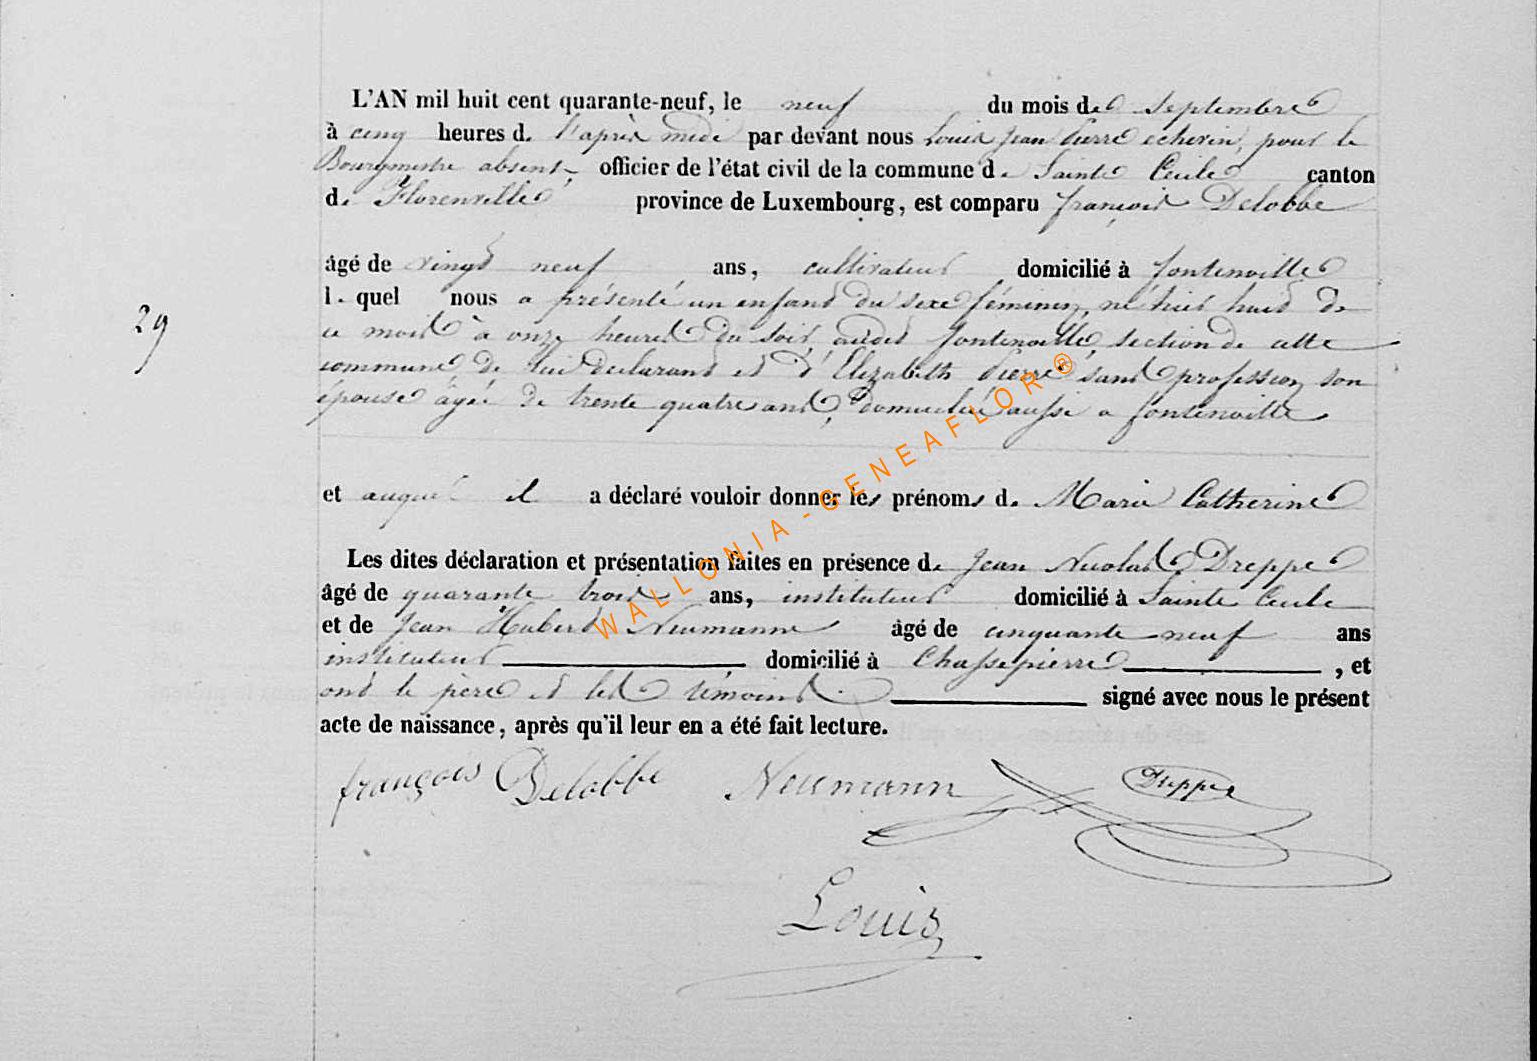 L'AN mil huit cent quarante-neuf, le neuf du mois de Septembre
à cinq heures d. l'après midi par devant nous Louis Jean Pierre echevin, pour le
Bourgmestre absent, officier de l'état civil de la commune d. Sainte Cecile canton
d. Florenville province de Luxembourg, est comparu françois Delobbe
âgé de vingt neuf ans, cultivateur domicilié à fontenoille
l. quel nous a présenté un enfant du sexe féminin, né hier huit de
ce mois à onze heures du soir, audit fontenoille, section de cette
commune, de lui declarant et d'Elizabeth Pierre sans profession, son
épouse âgée de trente quatre ans, domiciliée aussi a fontenoille
29
et auquel il a déclaré vouloir donner les prénoms d. Marie Catherine
Les dites déclaration et présentation faites en présence d. Jean Nicolas Dreppe
âgé de quarante trois ans, instituteur domicilié à Sainte Cecile
et de Jean Hubert Neumann âgé de cinquante neuf ans
instituteur domicilié à Chassepierre, et
ont le père et les témoins signé avec nous le présent
acte de naissance, après qu'il leur en a été fait lecture.
françois Delobbe Neumann Dreppe
Louis
WALLONIA-GENEAFLOR®